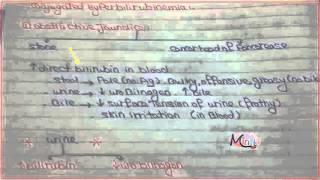 Conjugated hyperbilirubinemia
obstructive Jaundice
stone cancer head of Pancrease
↑ direct bilirubin in blood
stool → Pale (no Pig) bulky, offensive greasy (no bile
urine → ↓ urobilinogen ↑ Bile
Bile → ↓ surface tension of urine (frothy)
skin irritation (in Blood)
* urine *
bilirubin urobilinogen